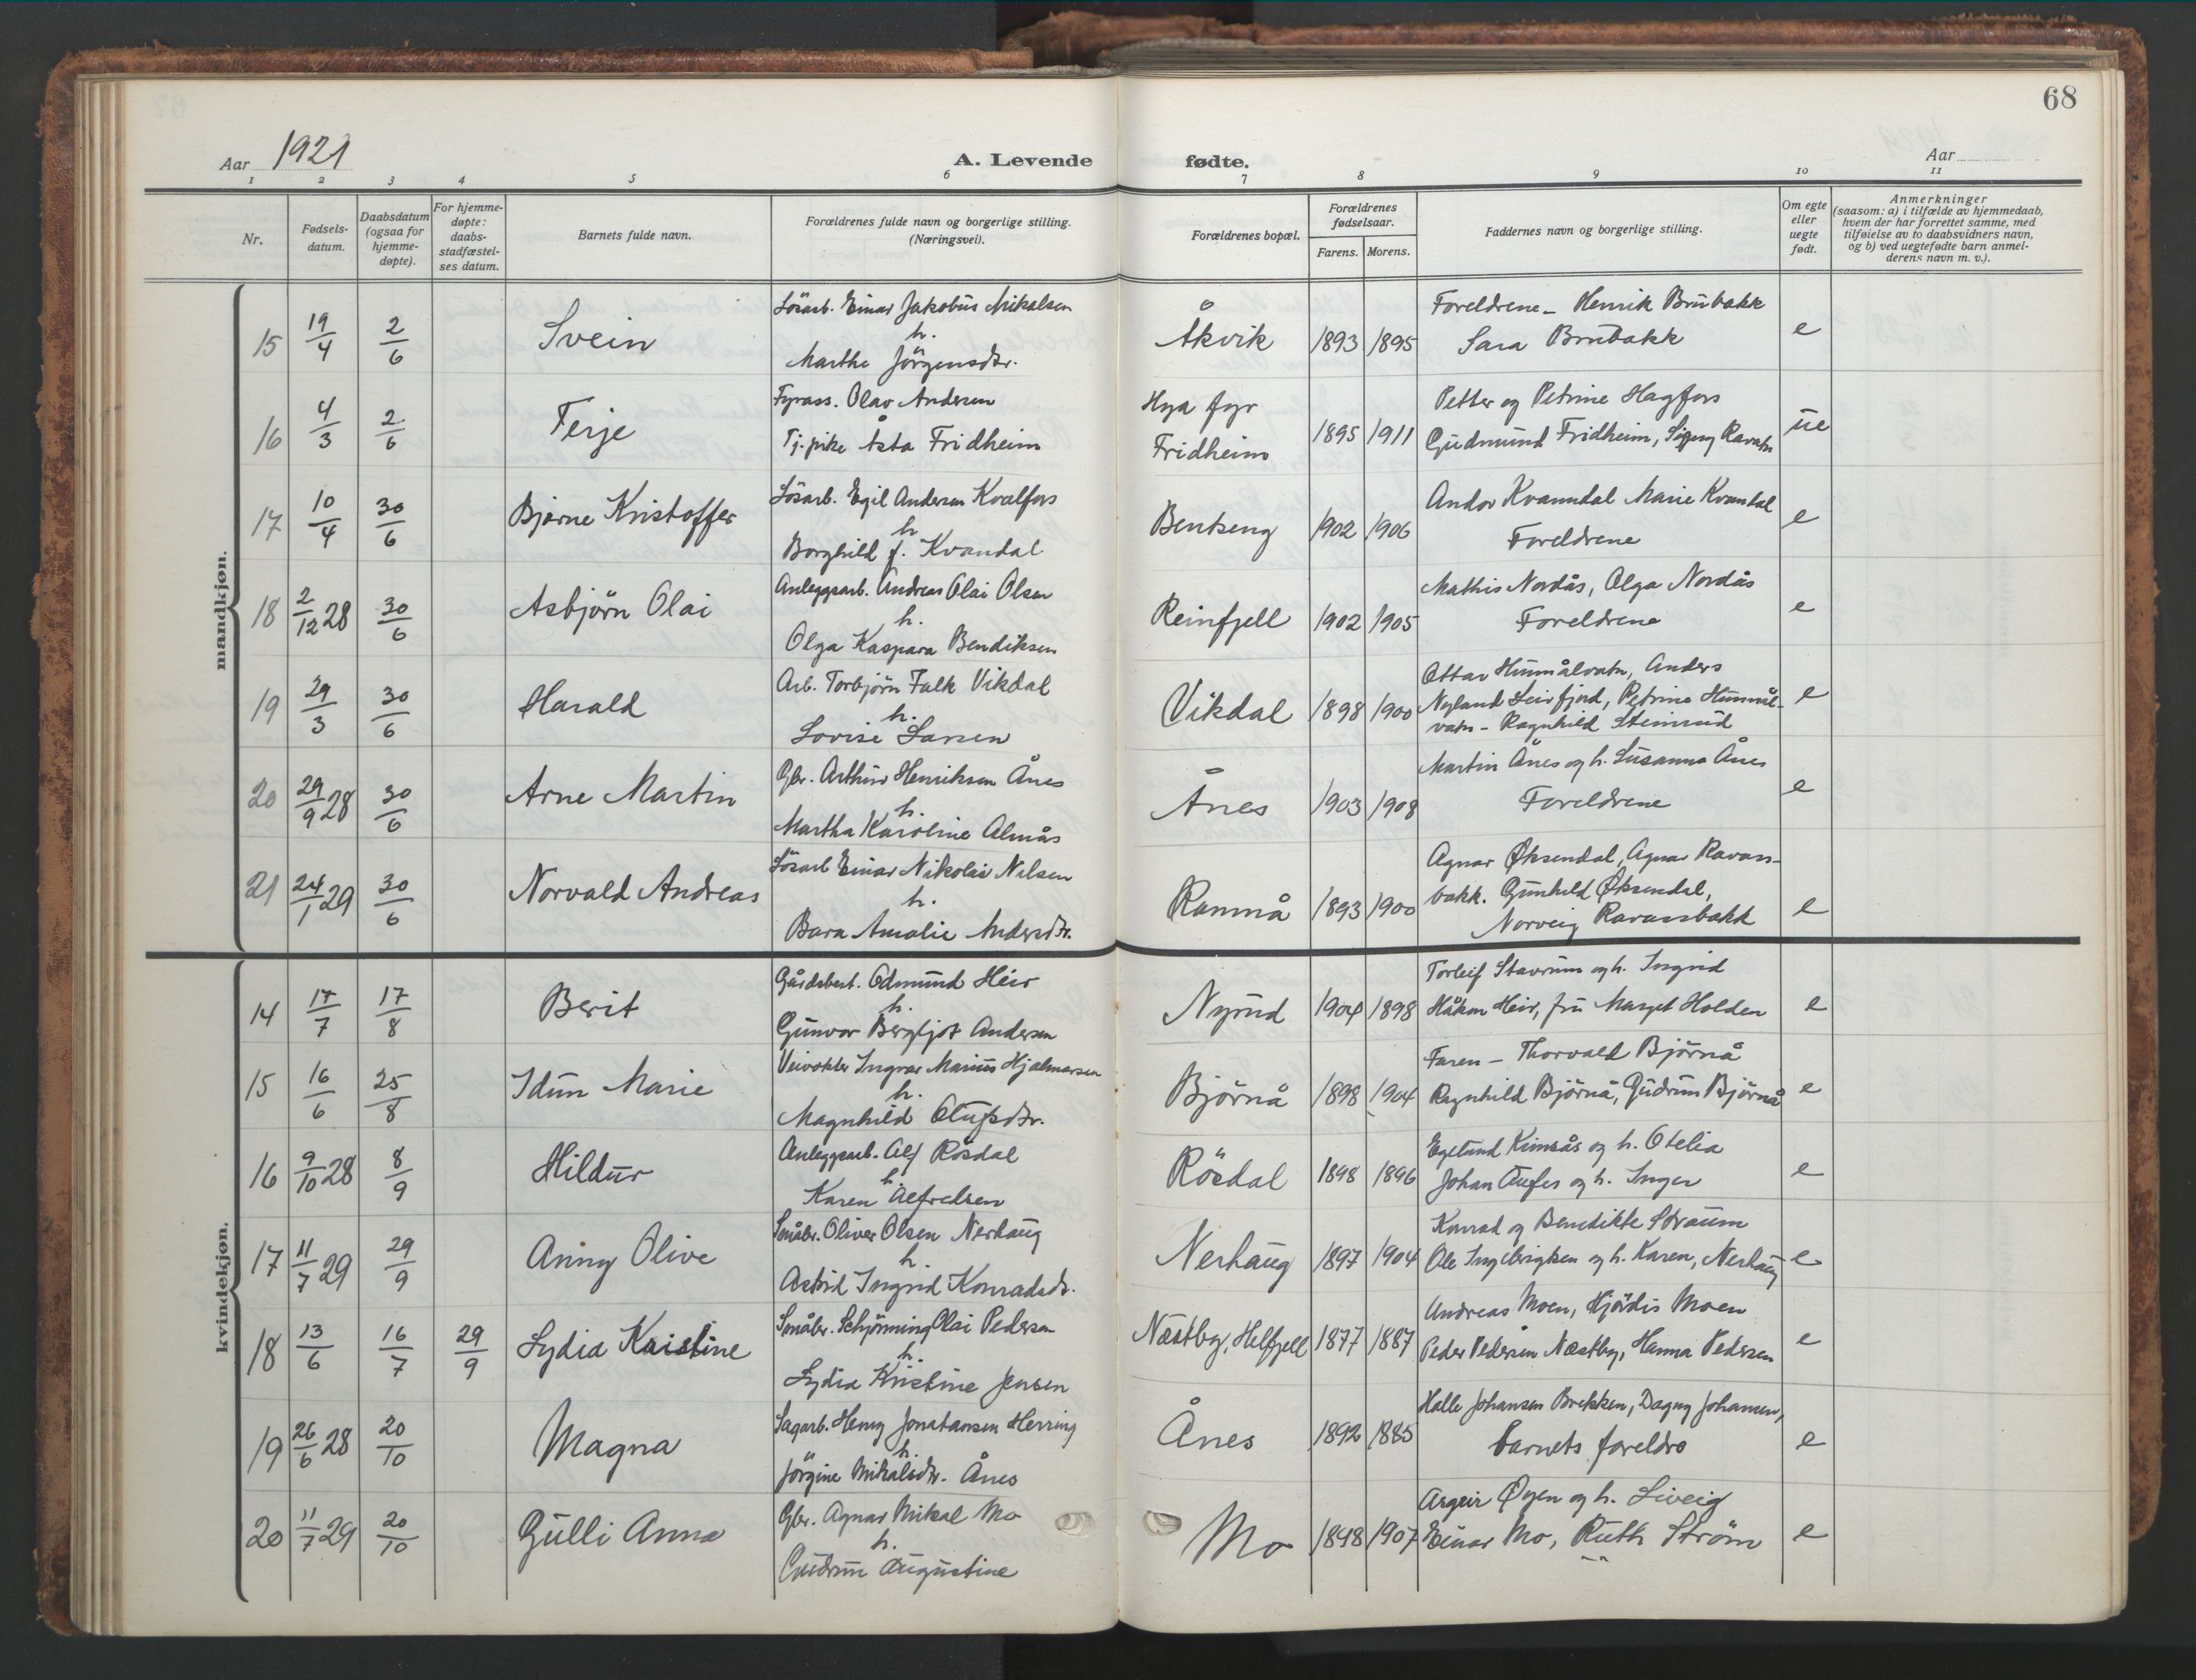 68
Aar 1929
A. Levende fødte.
Aar
1 2 3 4 5 6 7 8 9 10 11
Nr.
Fødsels-
datum.
Daabsdatum
(ogsaa for
hjemme-
døpte).
For hjemme-
døpte:
daabs-
stadfæstel-
ses datum.
Barnets fulde navn.
Forældrenes fulde navn og borgerlige stilling.
(Næringsvei).
Forældrenes bopæl.
Forældrenes
fødselsaar.
Farens. Morens.
Faddernes navn og borgerlige stilling.
Om egte
eller
uegte
født.
Anmerkninger
(saasom: a) i tilfælde av hjemmedaab,
hvem der har forrettet samme, med
tilføielse av to daabsvidners navn,
og b) ved uegtefødte barn anmel-
derens navn m. v.).
mandkjøn.
Lösarb. Einar Jakobus Mikalsen Foreldrene - Henrik Brubakk
15 19/4 2/6 Svein h. Åkvik 1893 1895 Sara Brubakk e
Marthe Jörgensdtr.
Fyrass. Olav Andersen Hya fyr Petter og Petrine Hagfors
16 4/3 2/6 Terje Tj.pike Åsta Fridheim Fridheim 1895 1911 Gudmund Fridheim, Signy Ravatn ue
Lösarb. Egil Andersen Kvalfors Andor Kvanndal Marie Kvandal
17 10/4 30/6 Bjarne Kristoffer h. Bentseng 1902 1906 Foreldrene e
Borghild f. Kvandal
Anleggsarb. Andreas Olai Olsen Mathis Nordås, Olga Nordås
18 2/12 28 30/6 Asbjörn Olai h. Reinfjell 1902 1905 Foreldrene e
Olga Kaspara Bendiksen
Arb. Torbjörn Falk Vikdal Ottar Hummålvatn, Anders
19 29/3 30/6 Harald h. Vikdal 1898 1900 Nyland Leirfjord, Petrine Hummål- e
Lovise Larsen vatn - Ragnhild Steinrud
Gbr. Arthur Henriksen Ånes Martin Ånes og h. Susanna Ånes
20 29/9 28 30/6 Arne Martin h. Ånes 1903 1908 Foreldrene e
Martha Karoline Almås
Lösarb Einar Nikolai Nilsen Agnar Øksendal, Agnar Ravass-
21 24/1 29 30/6 Norvald Andreas h. Ramnå 1893 1900 bakk. Gunhild Øksendal, e
Bara Amalie Andersdtr. Norveig Ravassbakk
kvindekjøn.
Gårdsbest. Odmund Heir Torleif Stavrum og h. Ingrid
14 17/7 17/8 Berit h. Nyrud 1904 1898 Håkon Heir, fru Marget Holden e
Gunvor Bergljot Andersen
Veivokter Ingvar Marius Hjalmarsen Faren - Thorvald Björnå
15 16/6 25/8 Idun Marie h. Björnå 1898 1904 Ragnhild Björnå, Gudrun Björnå e
Magnhild Olufsdtr.
Anleggsarb. Alf Rösdal Egelund Kimsås og h. Otelia
16 9/10 28 8/9 Hildur h. Rösdal 1898 1896 Johan Aufles og h. Inger e
Karen Alfredsen
Småbr. Oliver Olsen Nerhaug Konrad og Benedikte Straum
17 11/7 29 29/9 Anny Olive h. Nerhaug 1897 1904 Ole Ingebrigtsen og h. Karen, Nerhaug e
Astrid Ingrid Konradsdr.
Småbr. Schjönning Olai Pedersen Andreas Moen, Hjördis Moen
18 13/6 16/7 29/9 Lydia Kristine h. Næstby, Helfjell 1877 1887 Peder Pedersen Næstby, Hanna Pedersen e
Lydia Kristine Jensen
Sagarb. Henry Jonatansen Herring Halle Johansen Brekken, Dagny Johansen,
19 26/6 28 20/10 Magna h. Ånes 1892 1885 barnets foreldre e
Jörgine Mikalsdtr. Ånes
Gbr. Agnar Mikal Mo Asgeir Øyen og h. Liveig
20 11/7 29 20/10 Gulli Anna h. Mo 1898 1907 Einar Mo, Ruth Ström e
Gudrun Augustine